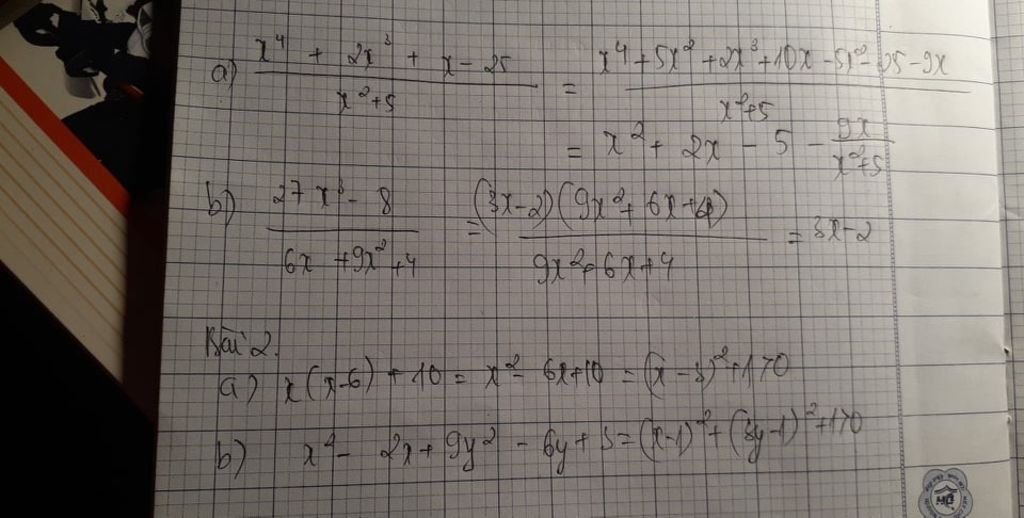 a) (x⁴ + 2x³ + x - 25)/(x²+5) = (x⁴+5x²+2x³+10x-5x²-25-9x)/(x²+5)
= x² + 2x - 5 - 9x/(x²+5)
b) (27x³ - 8)/(6x+9x²+4) = (3x-2)(9x²+6x+4)/(9x²+6x+4) = 3x-2
Bài 2.
a) x(x-6) + 10 = x² - 6x+10 = (x-3)²+1>0
b) x² - 2x + 9y² - 6y + 3 = (x-1)²+(3y-1)²+1>0